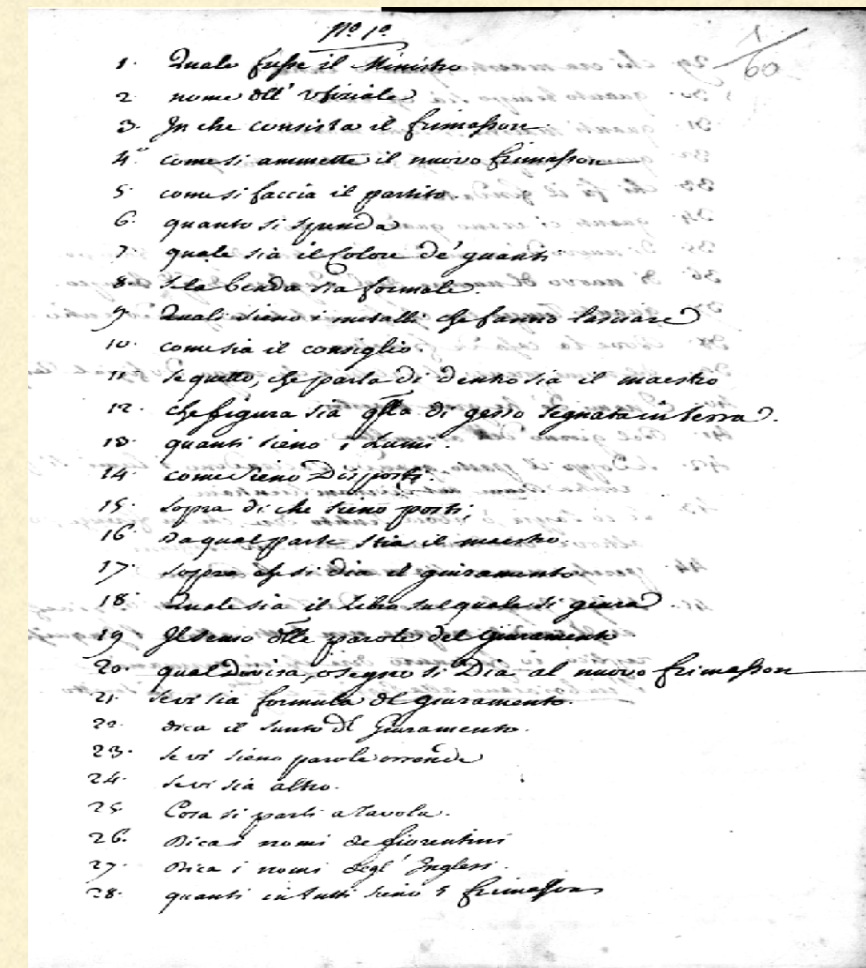 N.º 1º
1 / 60
1. Quale fusse il Ministro
2 nome dell' Ufiziale
3. In che consista il frimasson.
4. come si ammette il nuovo frimasson
5 come si faccia il partito.
6. quanto si spenda
7. quale sia il Colore de' guanti
8. se la benda sia formale.
9. Quali sieno i metalli che fanno lasciare
10. come sia il consiglio.
11. se quello, che parla di dentro sia il maestro
12. che figura sia qlla di gesso segnata in terra.
13. quanti sieno i Lumi.
14. come sieno Disposti.
15. sopra di che sieno posti
16 da qual parte stia il maestro.
17. sopra che si dia il giuramento
18. Quale sia il libro sul quale si giura
19 Il senso dlle parole del giuramento
20. qual Divisa, o segno si Dia al nuovo frimasson
21. se vi sia formula dl giuramento.
22. dica il sunto dl Giuramento.
23. se vi sieno parole orrende
24. se vi sia altro.
25 Cosa si parli a tavola.
26. Dica i nomi de fiorentini
27. Dica i nomi degl' Inglesi.
28. quanti in tutti sieno i frimassons